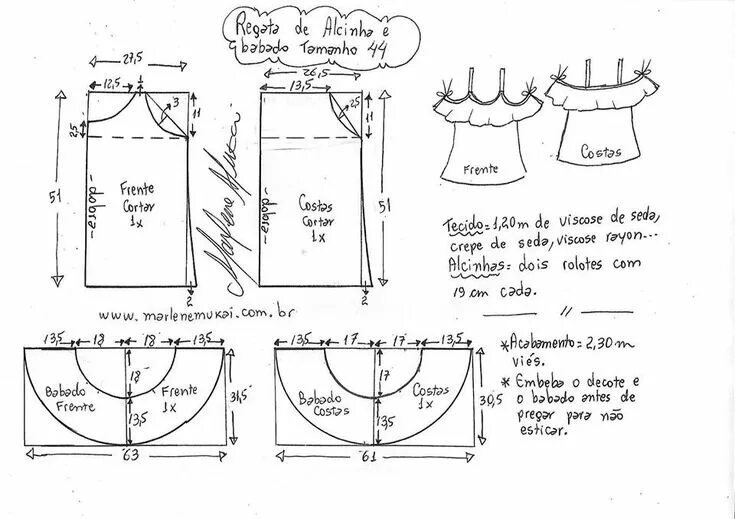 Regata de Alcinha e
babado Tamanho 44
27,5
12,5
1
3
11
2,5
51
-dobra-
Frente
Cortar
1x
2
26,5
13,5
2,5
11
51
-dobra-
Costas
Cortar
1x
2
Marlene Mukai
Frente
Costas
Tecido=1,20m de viscose de seda,
crepe de seda, viscose rayon...
Alcinhas= dois rolotes com
19 cm cada.
www.marlenemukai.com.br
13,5 18 18 13,5
18
13,5
31,5
Babado
Frente
Frente
1x
63
13,5 17 17 13,5
17
13,5
30,5
Babado
Costas
Costas
1x
61
*Acabamento=2,30m
viés.
* Embeba o decote e
o babado antes de
pregar para não
esticar.